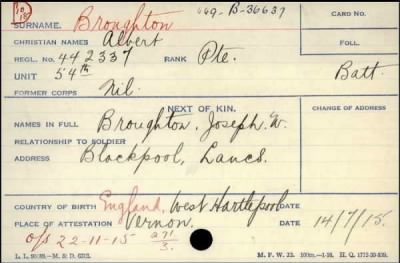 Bo
15
649-B-36637
CARD NO.
SURNAME. Broughton
CHRISTIAN NAMES Albert
FOLL.
REGL. NO. 442337 RANK Pte.
UNIT 54th Batt.
FORMER CORPS Nil.
NEXT OF KIN.
CHANGE OF ADDRESS
NAMES IN FULL Broughton, Joseph W.
RELATIONSHIP TO SOLDIER
ADDRESS Blackpool, Lancs.
COUNTRY OF BIRTH England, West Hartlepool DATE
PLACE OF ATTESTATION Vernon. DATE 14/7/15.
o/s 22-11-15 271/3.
M. F. W. 22.